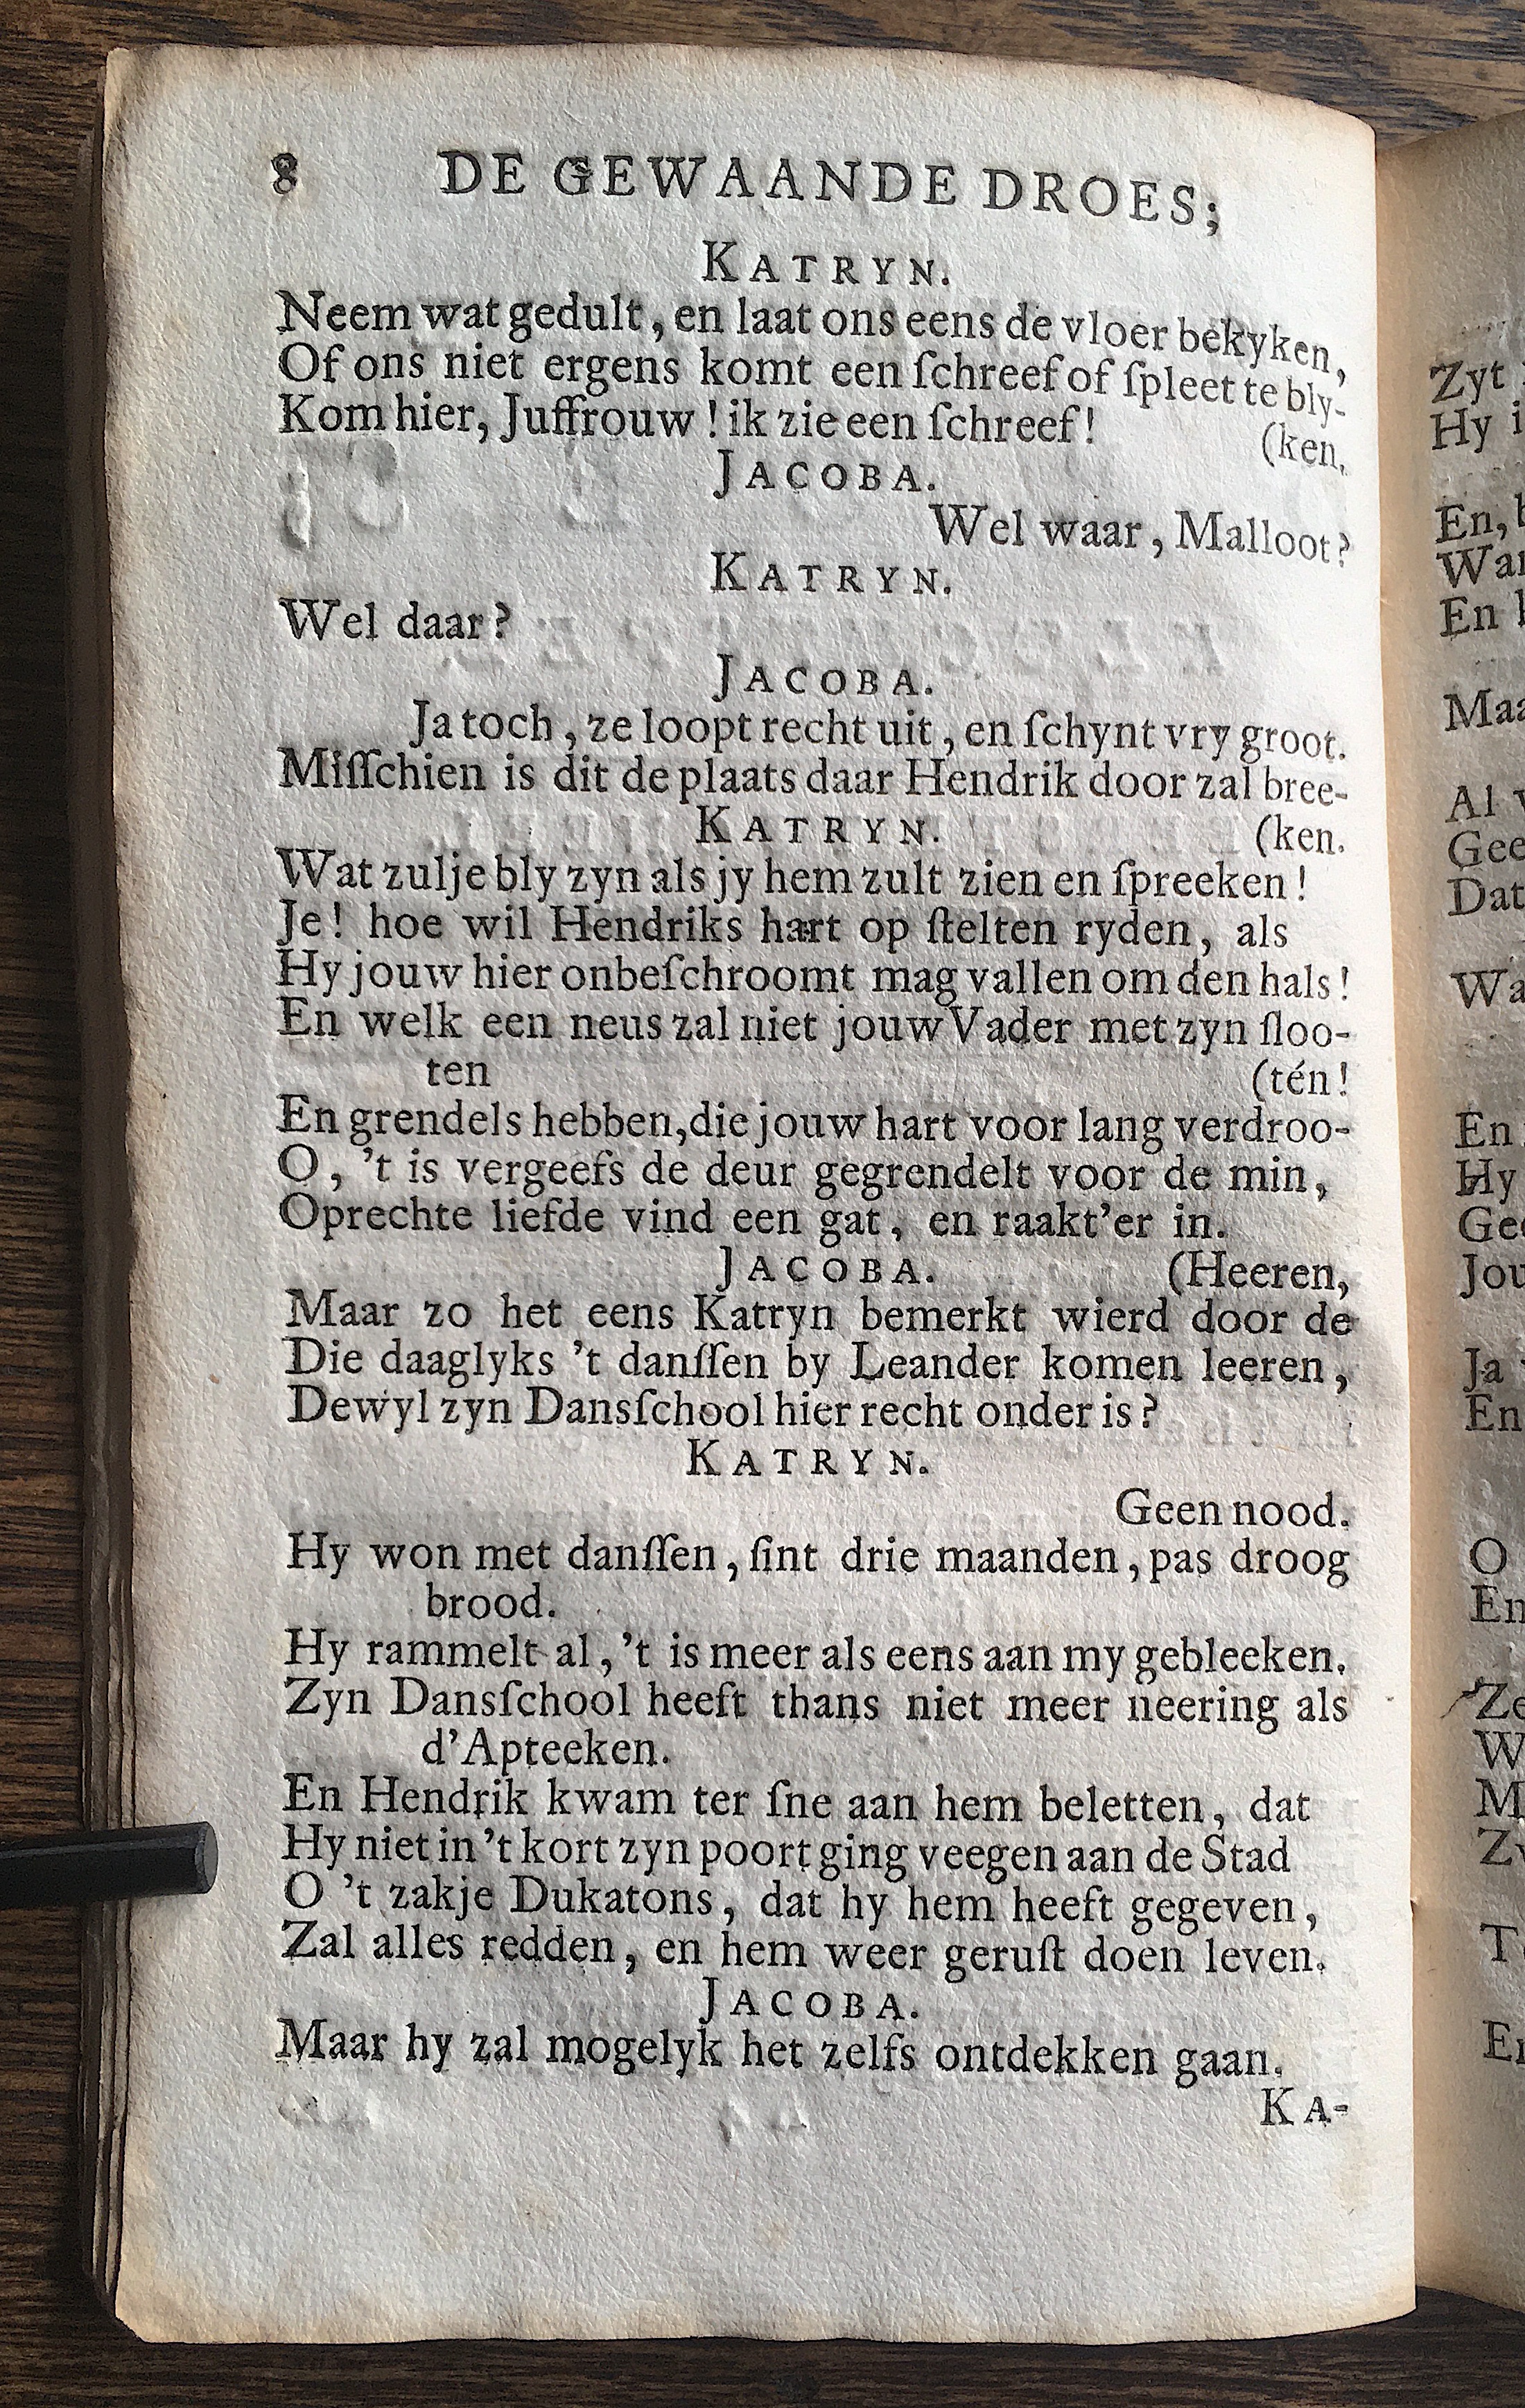 8 DE GEWAANDE DROES;
KATRYN.
Neem wat gedult, en laat ons eens de vloer bekyken,
Of ons niet ergens komt een ſchreef of ſpleet te bly-
Kom hier, Juffrouw! ik zie een ſchreef! (ken.
JACOBA.
Wel waar, Malloot?
KATRYN.
Wel daar?
JACOBA.
Ja toch, ze loopt recht uit, en ſchynt vry groot.
Miſſchien is dit de plaats daar Hendrik door zal bree-
KATRYN. (ken.
Wat zulje bly zyn als jy hem zult zien en ſpreeken!
Je! hoe wil Hendriks hart op ſtelten ryden, als
Hy jouw hier onbeſchroomt mag vallen om den hals!
En welk een neus zal niet jouw Vader met zyn ſloo-
ten (tén!
En grendels hebben, die jouw hart voor lang verdroo-
O, 't is vergeefs de deur gegrendelt voor de min,
Oprechte liefde vind een gat, en raakt'er in.
JACOBA. (Heeren,
Maar zo het eens Katryn bemerkt wierd door de
Die daaglyks 't danſſen by Leander komen leeren,
Dewyl zyn Dansſchool hier recht onder is?
KATRYN.
Geen nood.
Hy won met danſſen, ſint drie maanden, pas droog
brood.
Hy rammelt al, 't is meer als eens aan my gebleeken.
Zyn Dansſchool heeft thans niet meer neering als
d'Apteeken.
En Hendrik kwam ter ſne aan hem beletten, dat
Hy niet in 't kort zyn poort ging veegen aan de Stad
O 't zakje Dukatons, dat hy hem heeft gegeven,
Zal alles redden, en hem weer geruſt doen leven.
JACOBA.
Maar hy zal mogelyk het zelfs ontdekken gaan.
KA-
Zyt
Hy i
En,
Wan
En
Maa
Al
Gee
Dat
Wa
En
Hy
Gee
Jou
Ja
En
O
En
Ze
W
M
Zv
T
En